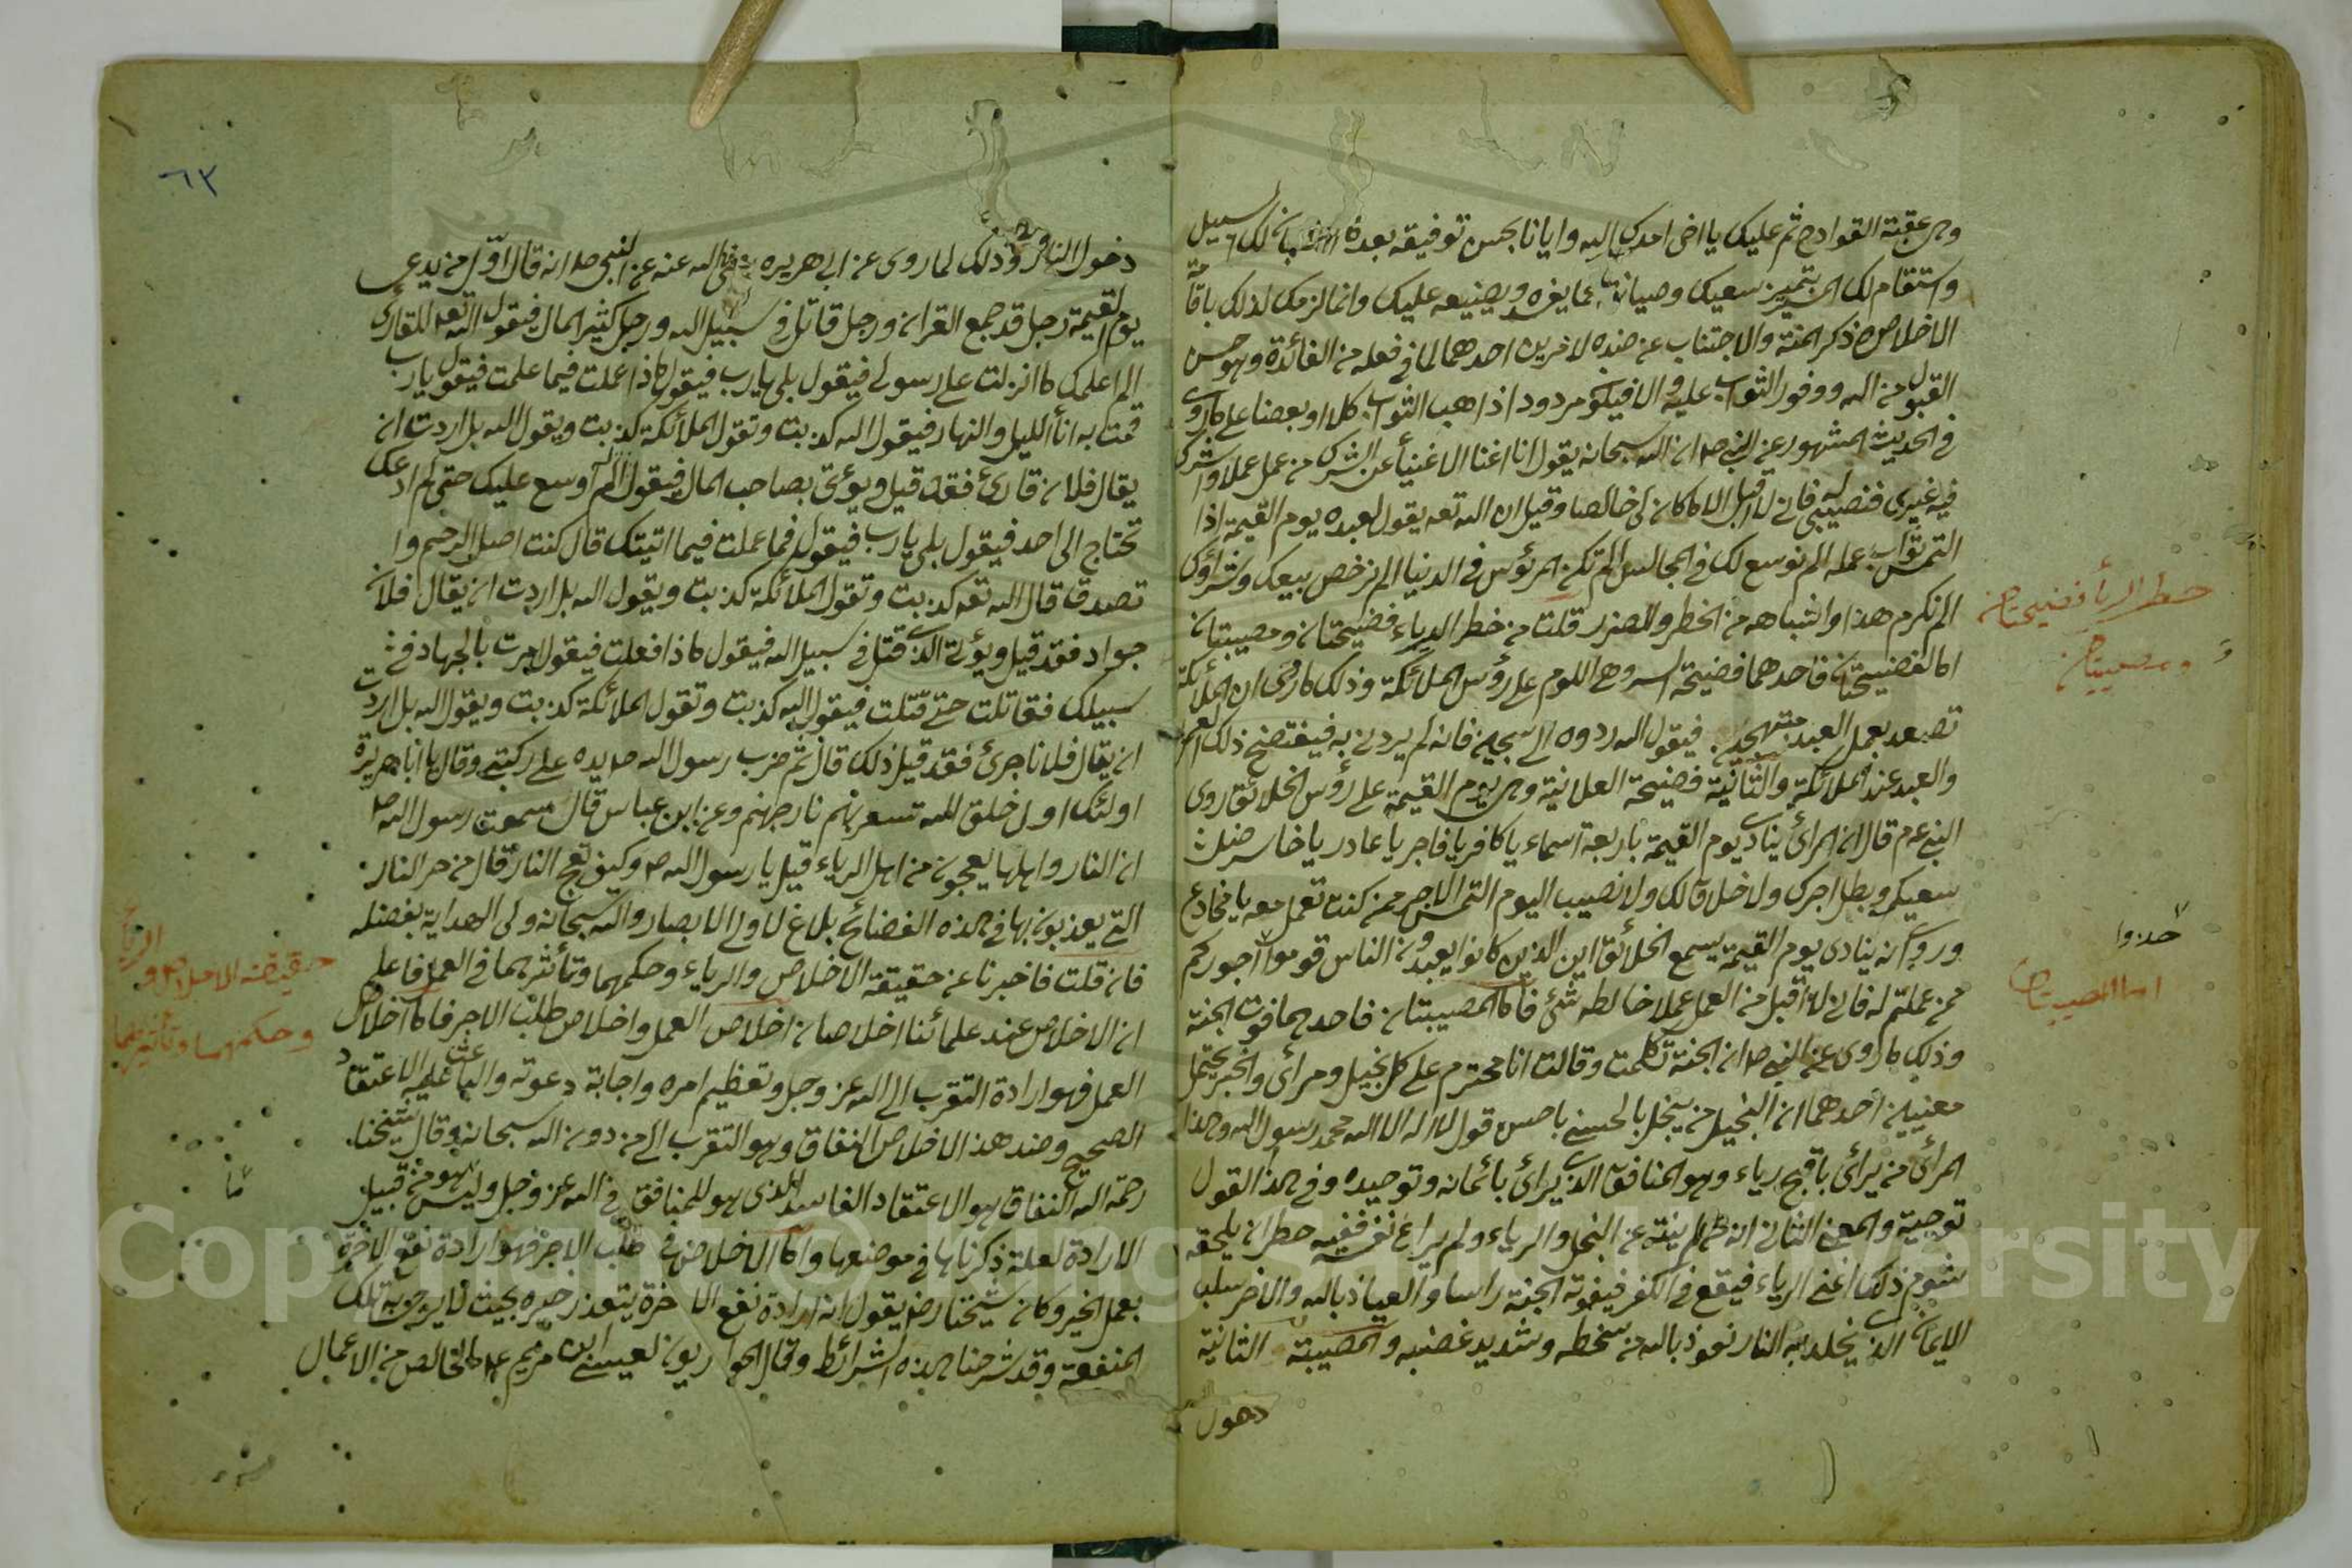 وهى عقبة القوادح ثم عليك يا اخى امدك الله وايانا بحسن توفيقه بعد سبيل
واستقام لك بتميز سعيك وصيانته عما يغره ويضيعه عليك وانما لزمك لذلك باقامة
الاخلاص ذكر المنة والاجتناب عن ضده لامرين احدهما لما فى فعله من الفائدة وهو حسن
القبول من الله ووفور الثواب عليه والا فيكون مردود اذاهب الثواب كلا او بعضا على ما روى
فى الحديث المشهور عن النبى صم ان الله سبحانه يقول انا اغنا الاغنيأ عن الشرك من عمل عملا واشرك
فيه غيرى فنصيبى له فانى لا اقبل الا ما كان لى خالصا وقيل ان الله تعه يقول لعبده يوم القيمة اذا
التمس ثواب عمله الم نوسع لك فى المجالس الم تكن المرؤس فى الدنيا الم نرخص بيعك وشراؤك
الم نكرم هذا واشباهه من الخطر والضرر قلت من خطر الرياء فضيحتان ومصيبتان
اما الفضيحتان فاحدهما فضيحة السر وهى اللوم على رؤس الملائكة وذلك ما روى ان الملائكة
تصعد بعمل العبد مبتهجين فيقول الله ردوه الى سجين فانه لم يردنى به فيفتضح ذلك العمل
والعبد عند الملائكة والثانية فضيحة العلانية وهى يوم القيمة على رؤس الخلائق روى
النبى عم قال ان المرائى ينادى يوم القيمة باربعة اسماء يا كافر يا فاجر يا غادر يا خاسر ضل
سعيكم وبطل اجرك ولا خلاق لك ولا نصيب اليوم التمس الاجر ممن كنت تعمل معه يا مخادع
وروى انه ينادى يوم القيمة يسمع الخلائق اين الذين كانوا يعبدون الناس قوموا اجوركم
ممن عملتم له فانى لا اقبل من العمل عملا خالطه شئ فاما المصيبتان فاحدهما فوت الجنة
وذلك ما روى عن النبى صم ان الجنة تكلمت وقالت انا محترم على كل بخيل ومرائى والخبر يحتمل
معنيين احدهما ان البخيل من يبخل بالحسنى باحسن قول لا اله الا الله محمد رسول الله وهذا
المرائى من يرائى باقبح رياء وهو المنافق الذى يرائى بائمانه وتوحيده وفى هذا القول
توجية والمعنى الثانى انه لم ينته عن البخل والرياء ولم يراع نفسه ففيه خطر ان يلحقه
شوم ذلك اعنى الرياء فيقع فى الكفر فيفوته الجنة راسا والعياذ بالله والاخر سلب
الايمان الذى يخلد به النار نعوذ بالله من سخطه وشديد غضبه والمصيبة الثانية
دخول
خطر الرياء فضيحتان
ومصيبتان
خذوا
اما المصيبتان
٦٣
دخول النار وذلك لما روى عن ابى هريرة رضى الله عنه عن النبى صم انه قال اول من يدعى
يوم القيمة رجل قد جمع القران ورجل قاتل فى سبيل الله ورجل كثير المال فيقول الله تعه للقارئ
الم اعلمك ما انزلت على رسولى فيقول بلى يا رب فيقول ماذا عملت فيما علمت فيقول يا رب
قمت به انأ الليل والنهار فيقول الله كذبت وتقول الملائكة كذبت ويقول الله بل اردت ان
يقال فلان قارئ فقد قيل ويؤتى بصاحب المال فيقول الم اوسع عليك حتى لم ادعك
تحتاج الى احد فيقول بلى يا رب فيقول فما عملت فيما اتيتك قال كنت اصل الرحم وا
تصدق قال الله تعه كذبت وتقول الملائكة كذبت ويقول الله بل اردت ان يقال فلان
جواد فقد قيل ويؤتى الذى قتل فى سبيل الله فيقول ماذا فعلت فيقول امرت بالجهاد فى
سبيلك فقاتلت حتى قتلت فيقول الله كذبت وتقول الملائكة كذبت ويقول الله بل اردت
ان يقال فلانا جرئ فقد قيل ذلك قال ثم ضرب رسول الله صم يده على ركبتى وقال يا ابا هريرة
اولئك اول خلق الله تسعر بهم نار جهنم وعن ابن عباس قال سمعت رسول الله صم
ان النار واهلها يعجون من اهل الرياء قيل يا رسول الله صم وكيف تعج النار قال من حر النار
التى يعذبون بها فى هذه الفضائح بلاغ لاولى الابصار والله سبحانه ولى الهداية بفضله
فان قلت فاخبرنا عن حقيقة الاخلاص والرياء وحكمهما وتأثيرهما فى العمل فاعلم
ان الاخلاص عند علمائنا اخلاصان اخلاص العمل واخلاص طلب الاجر فاما اخلاص
العمل فهو ارادة التقرب الى الله عز وجل وتعظيم امره واجابة دعوته والباعث عليه الاعتقاد
الصحيح وضد هذا الاخلاص النفاق وهو التقرب الى من دون الله سبحانه وقال شيخنا
رحمة الله النفاق هو الاعتقاد الفاسد الذى هو للمنافق فى الله عز وجل وليس هو من قبيل
الارادة لعلة ذكرناها فى موضعها واما الاخلاص فى طلب الاجر فهو ارادة نفع الاخرة
بعمل الخير وكان شيخنا رضه يقول انه ارادة نفع الاخرة يتعذر خيره بحيث لا يرجو به تلك
المنفعة وقد شرحنا هذه الشرائط وقال الحواريون لعيسى ابن مريم عم ما الخالص من الاعمال
حقيقة الاخلاص والرياء
وحكمهما وتأثيرهما
Copyright © King Saud University